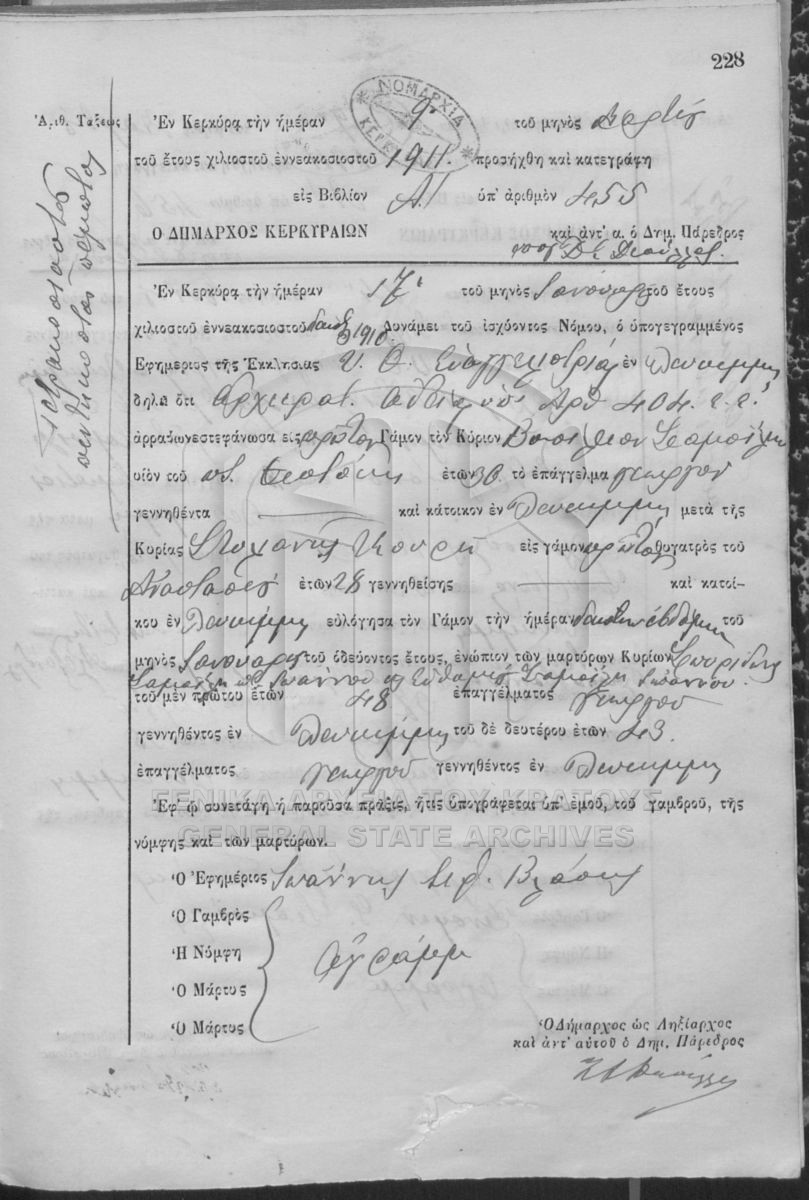 228
ΝΟΜΑΡΧΙΑ
Ἀριθ. Τάξεως
τετρακόσια
πεντήκοντα πέντε
Ἐν Κερκύρᾳ τὴν ἡμέραν τοῦ μηνὸς
τοῦ ἔτους χιλιοστοῦ ἐννεακοσιοστοῦ 1911. προσήχθη καὶ κατεγράφη
εἰς Βιβλίον Α! ὑπ' ἀριθμὸν 455
Ο ΔΗΜΑΡΧΟΣ ΚΕΡΚΥΡΑΙΩΝ καὶ ἀντ' α. ὁ Δημ. Πάρεδρος
Ἐν Κερκύρᾳ τὴν ἡμέραν 17 τοῦ μηνὸς Ἰανουαρίου τοῦ ἔτους
χιλιοστοῦ ἐννεακοσιοστοῦ 1910 Δυνάμει τοῦ ἰσχύοντος Νόμου, ὁ ὑπογεγραμμένος
Ἐφημέριος τῆς Ἐκκλησίας Υ. Θ. Εὐαγγελιστρίας ἐν Λευκίμμῃ
δηλῶ ὅτι Ἀρχιερατ. ἀδείας ὑπ' Ἀρθ 404. ἐ. ἔ.
ἀρραβωνεστεφάνωσα εἰς πρῶτον Γάμον τὸν Κύριον Βασίλειον Σαμοΐλην
υἱὸν τοῦ ἐτῶν 30 τὸ ἐπάγγελμα γεωργοῦ
γεννηθέντα καὶ κάτοικον ἐν Λευκίμμῃ μετὰ τῆς
Κυρίας Στυχανῆς Κουρῆ εἰς γάμον πρῶτον θυγατρὸς τοῦ
Ἀναστασίου ἐτῶν 28 γεννηθείσης καὶ κατοί-
κου ἐν Λευκίμμῃ εὐλόγησα τὸν Γάμον τὴν ἡμέραν δεκάτην ἑβδόμην τοῦ
μηνὸς Ἰανουαρίου τοῦ ὁδεύοντος ἔτους, ἐνώπιον τῶν μαρτύρων Κυρίων Σπυρίδωνος
Σαμοΐλη Ἰωάννου Εὐθυμίου Σαμοΐλη Ἰωάννου.
τοῦ μὲν πρώτου ἐτῶν 48 ἐπαγγέλματος γεωργοῦ
γεννηθέντος ἐν Λευκίμμῃ τοῦ δὲ δευτέρου ἐτῶν 43.
ἐπαγγέλματος γεωργοῦ γεννηθέντος ἐν Λευκίμμῃ
Ἐφ' ᾧ συνετάγη ἡ παροῦσα πρᾶξις, ἥτις ὑπογράφεται ὑπ' ἐμοῦ, τοῦ γαμβροῦ, τῆς
νύμφης καὶ τῶν μαρτύρων.
ΓΕΝΙΚΑ ΑΡΧΕΙΑ ΤΟΥ ΚΡΑΤΟΥΣ
GENERAL STATE ARCHIVES
Ὁ Ἐφημέριος Ἰωάννης Βλάσης
Ὁ Γαμβρὸς
Ἡ Νύμφη ἀγράμμ
Ὁ Μάρτυς
Ὁ Μάρτυς
Ὁ Δήμαρχος ὡς Ληξίαρχος
καὶ ἀντ' αὐτοῦ ὁ Δημ. Πάρεδρος